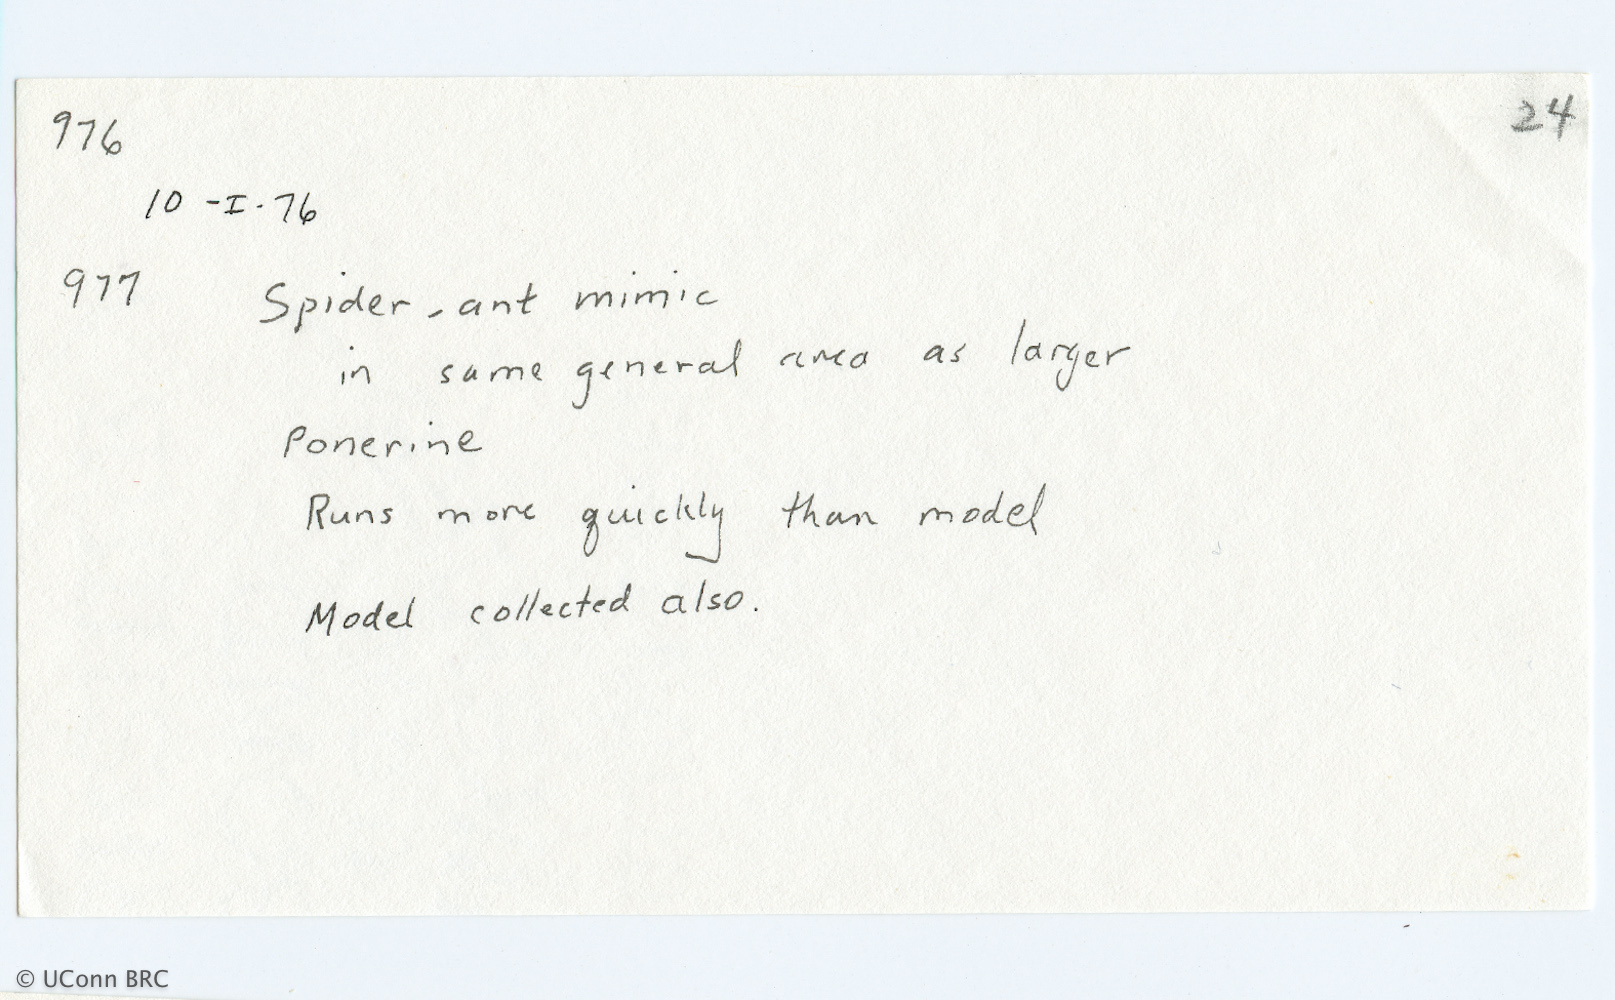 976
24
10-I-76
977 Spider-ant mimic
in same general area as larger
Ponerine
Runs more quickly than model
Model collected also.
© UConn BRC